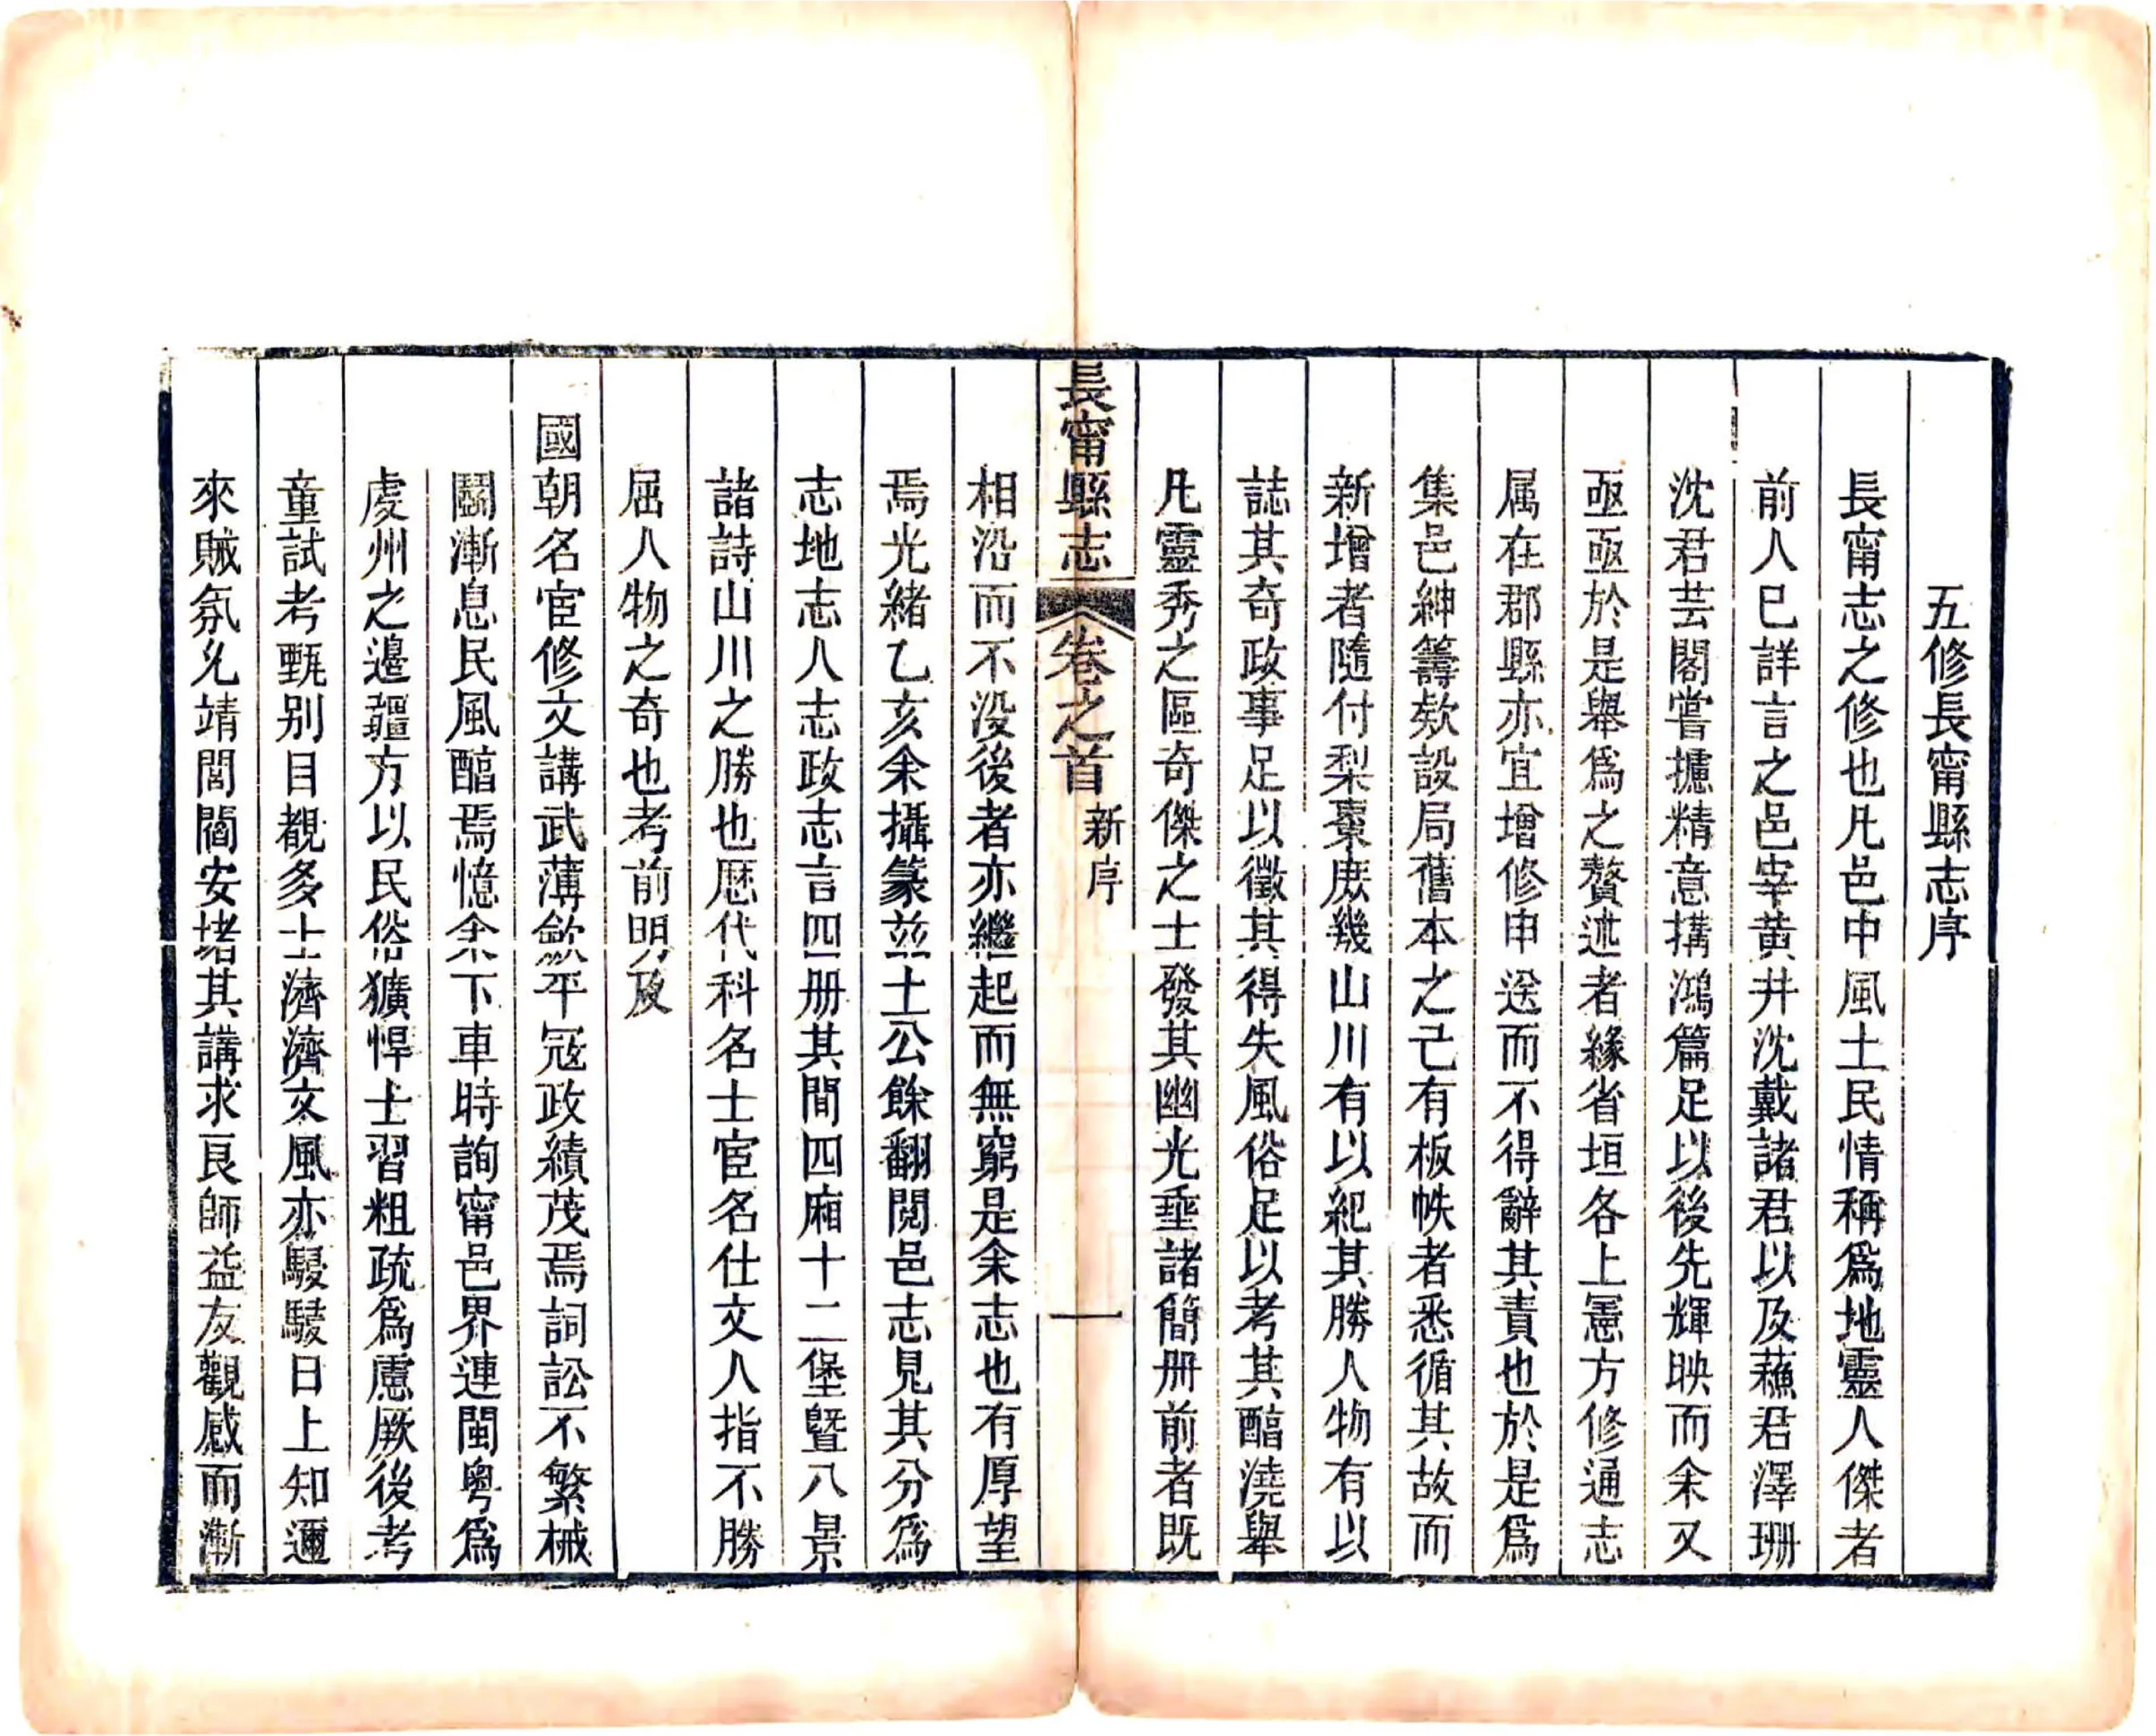 五修長甯縣志序
長甯志之修也凡邑中風土民情稱爲地靈人傑者
前人已詳言之邑宰黃井沈戴諸君以及蘓君澤珊
沈君芸閣嘗攄精意搆鴻篇足以後先輝映而余又
亟亟於是舉爲之贅述者緣省垣各上憲方修通志
属在郡縣亦宜增修申送而不得辭其責也於是爲
集邑紳籌欵設局舊本之已有板帙者悉循其故而
新增者隨付梨棗庶幾山川有以紀其勝人物有以
誌其奇政事足以徵其得失風俗足以考其醕澆舉
凡靈秀之區奇傑之士發其幽光垂諸簡册前者既
長甯縣志 卷之首 新序 一
相沿而不没後者亦繼起而無窮是余志也有厚望
焉光緒乙亥余攝篆兹土公餘翻閱邑志見其分爲
志地志人志政志言四册其間四廂十二堡暨八景
諸詩山川之勝也歷代科名士宦名仕文人指不勝
屈人物之奇也考前明及
國朝名宦修文講武薄斂平冦政績茂焉詞訟不繁械
鬬漸息民風醕焉憶余下車時詢甯邑界連閩粤爲
虔州之邊疆方以民俗獷悍士習粗疏爲慮厥後考
童試考甄别目覩多士濟濟文風亦駸駸日上知邇
來賊氛乆靖閭閻安堵其講求良師益友觀感而漸